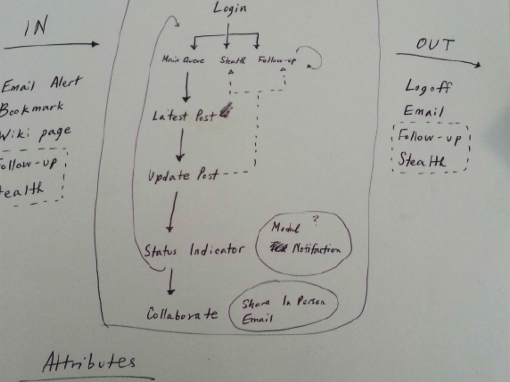 IN
Email Alert
Bookmark
Wiki page
Follow-up
Stealth
Login
Main Queue Stealth Follow-up
Latest Post
Update Post
Status Indicator
Modal ?
Notifaction
Collaborate
Share In Person
Email
OUT
Logoff
Email
Follow-up
Stealth
Attributes